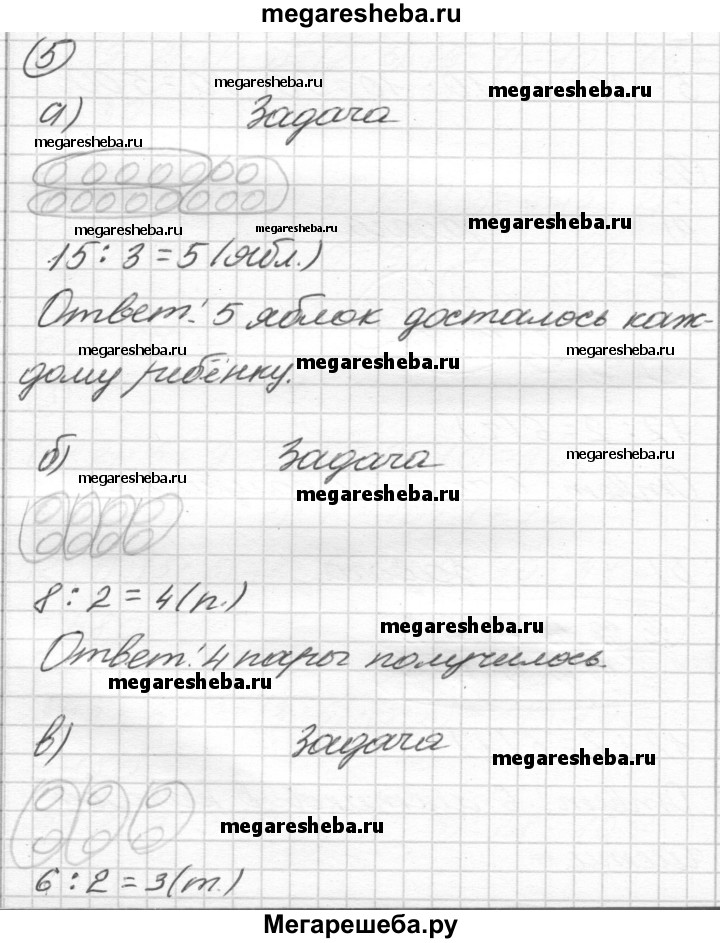 megaresheba.ru
5
megaresheba.ru
megaresheba.ru
а) Задача
megaresheba.ru
megaresheba.ru
megaresheba.ru
megaresheba.ru
15 : 3 = 5 (ябл.)
Ответ: 5 яблок досталось каж-
megaresheba.ru
megaresheba.ru
megaresheba.ru
дому ребёнку.
б) Задача
megaresheba.ru
megaresheba.ru
megaresheba.ru
8 : 2 = 4 (п.)
megaresheba.ru
Ответ: 4 пары получилось.
megaresheba.ru
в) Задача
megaresheba.ru
megaresheba.ru
6 : 2 = 3 (т.)
Мегарешеба.ру